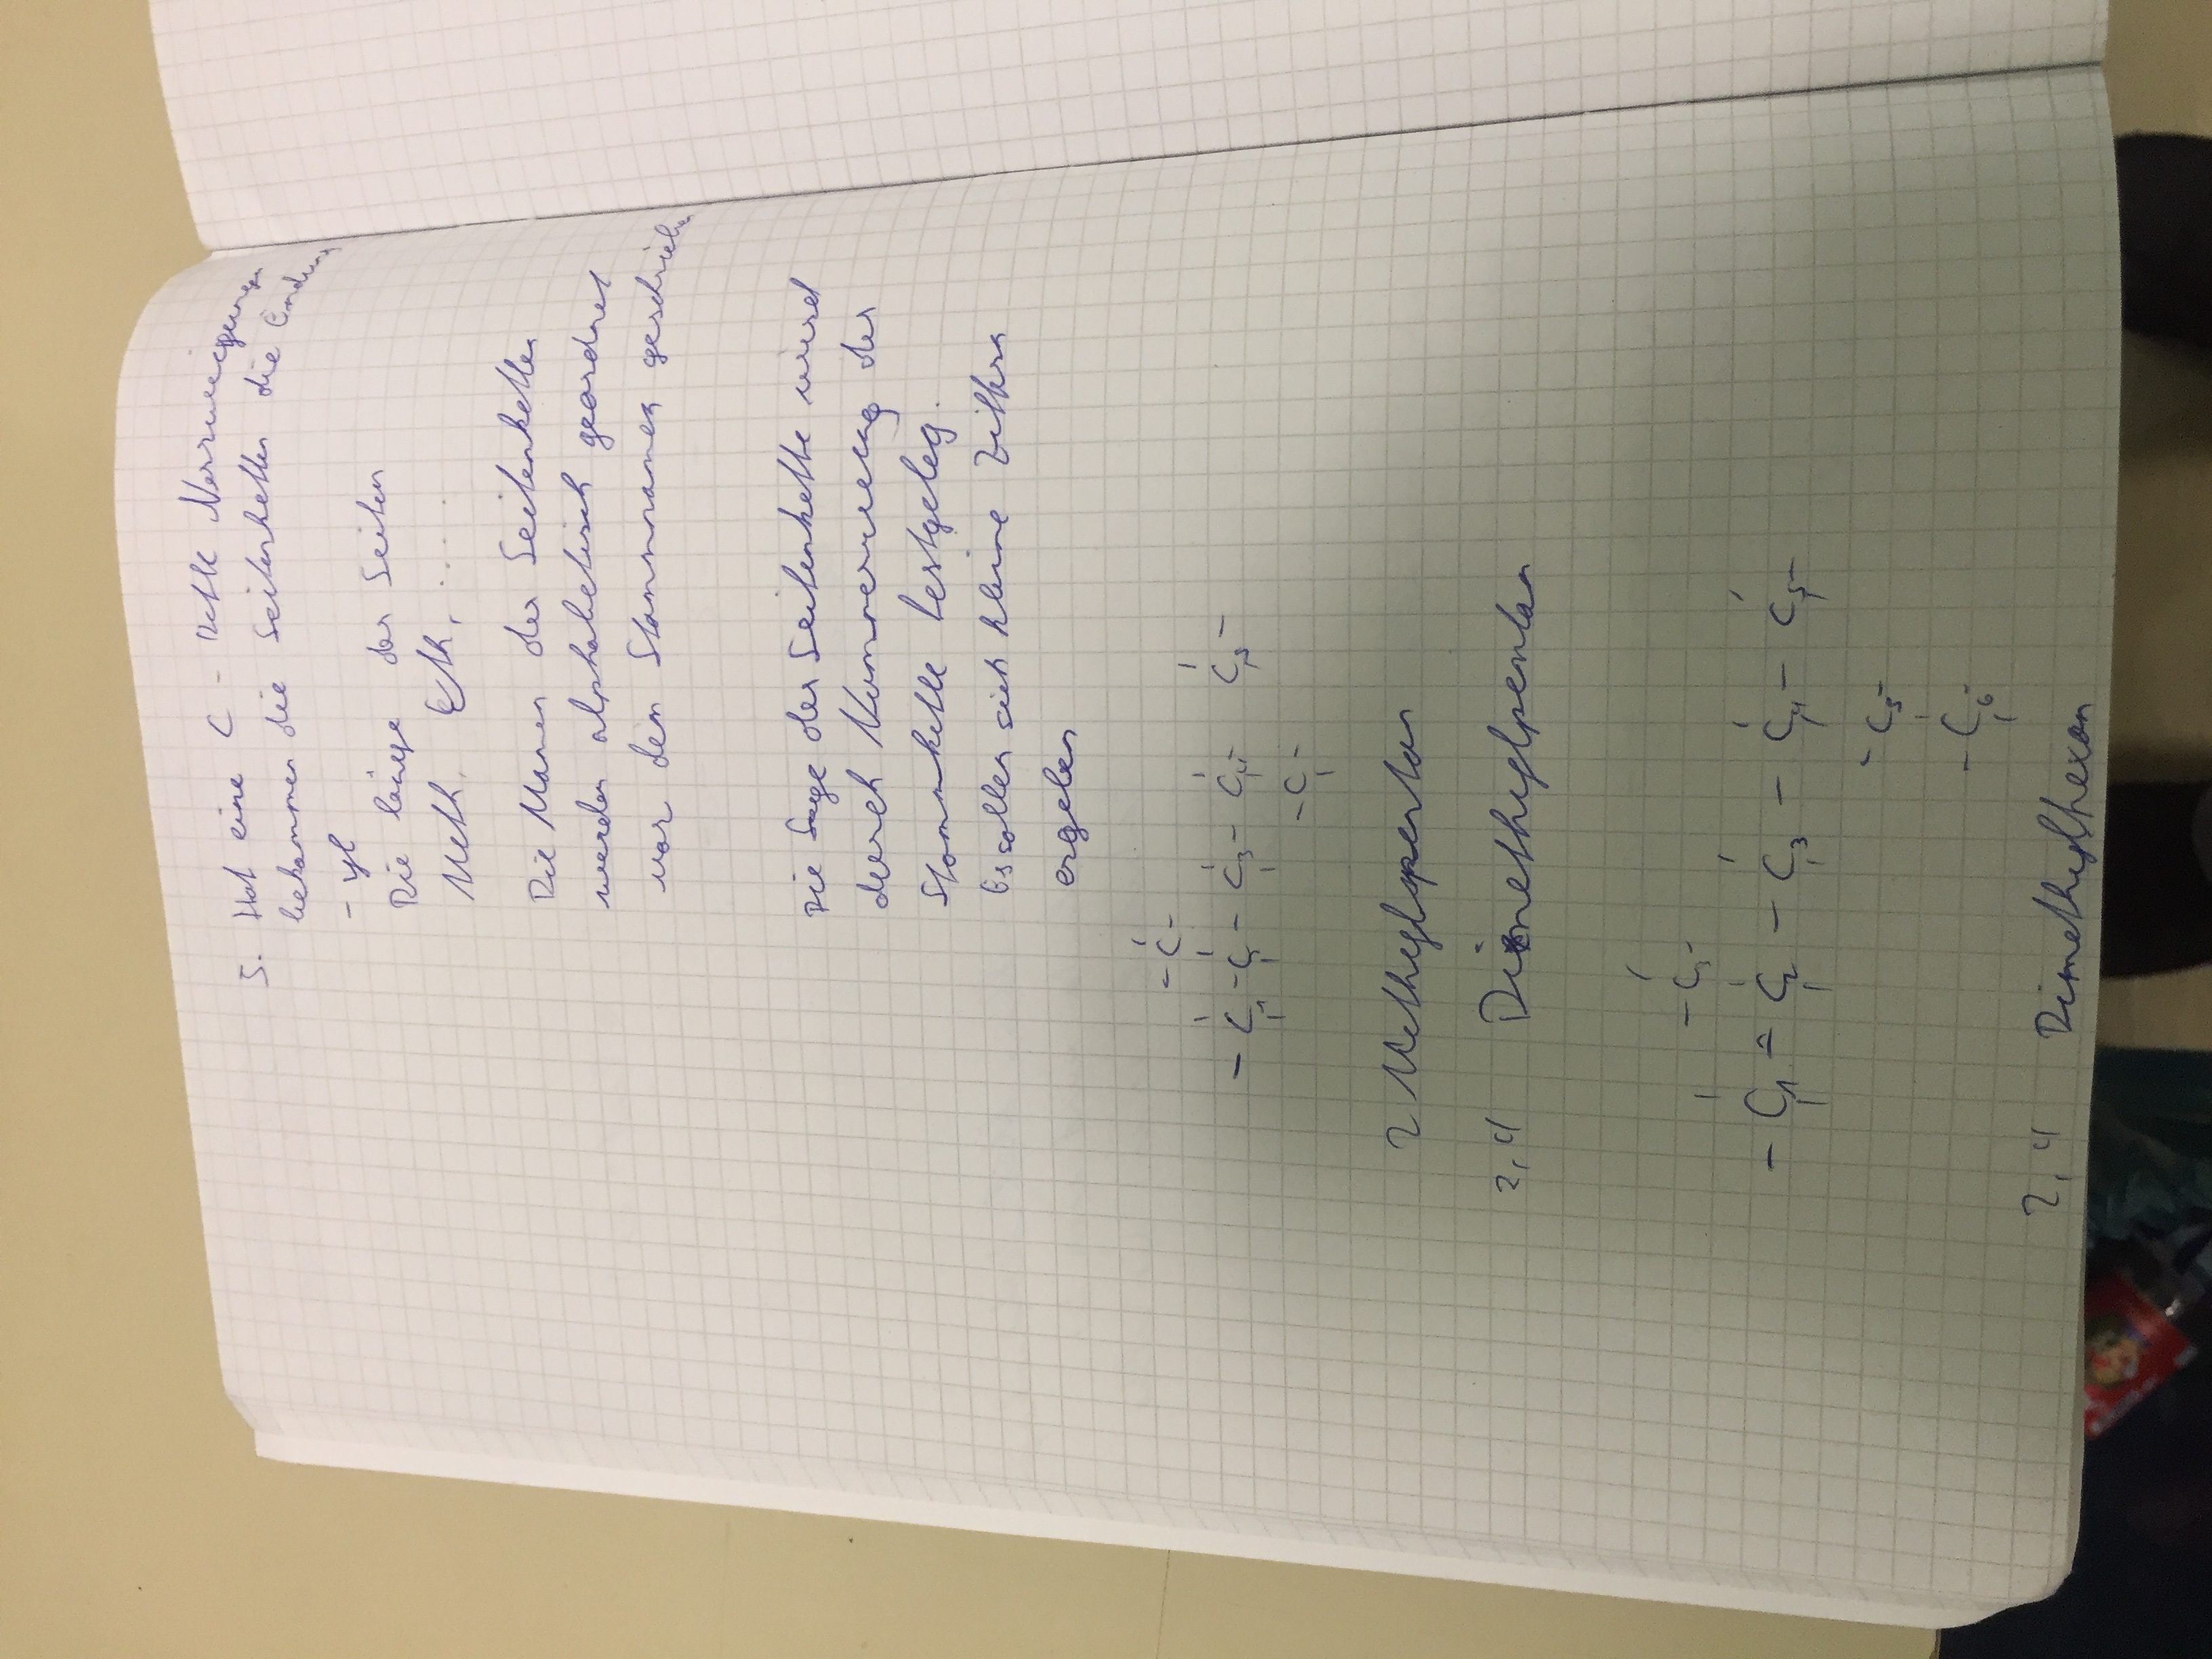 5. Hat eine C - Kette Verzweigungen
bekommen die Seitenketten die Endung
- yl
Die länge der Seiten
Meth, Eth, .....
Die Namen der Seitenketten
werden alphabetisch geordnet
vor dem Stammnamen geschrieben
Die Lage der Seitenkette wird
durch Nummerierung der
Stammkette festgeleg.
Es sollen sich kleine Ziffern
ergeben
- C -
- C1 - C - C3 - C4 - C5 -
- C -
2 Methylpentan
2,4 Dimethylpentan
- C1 -
- C1 = C2 - C3 - C4 - C5 -
- C5 -
- C6 -
2,4 Dimethylhexan